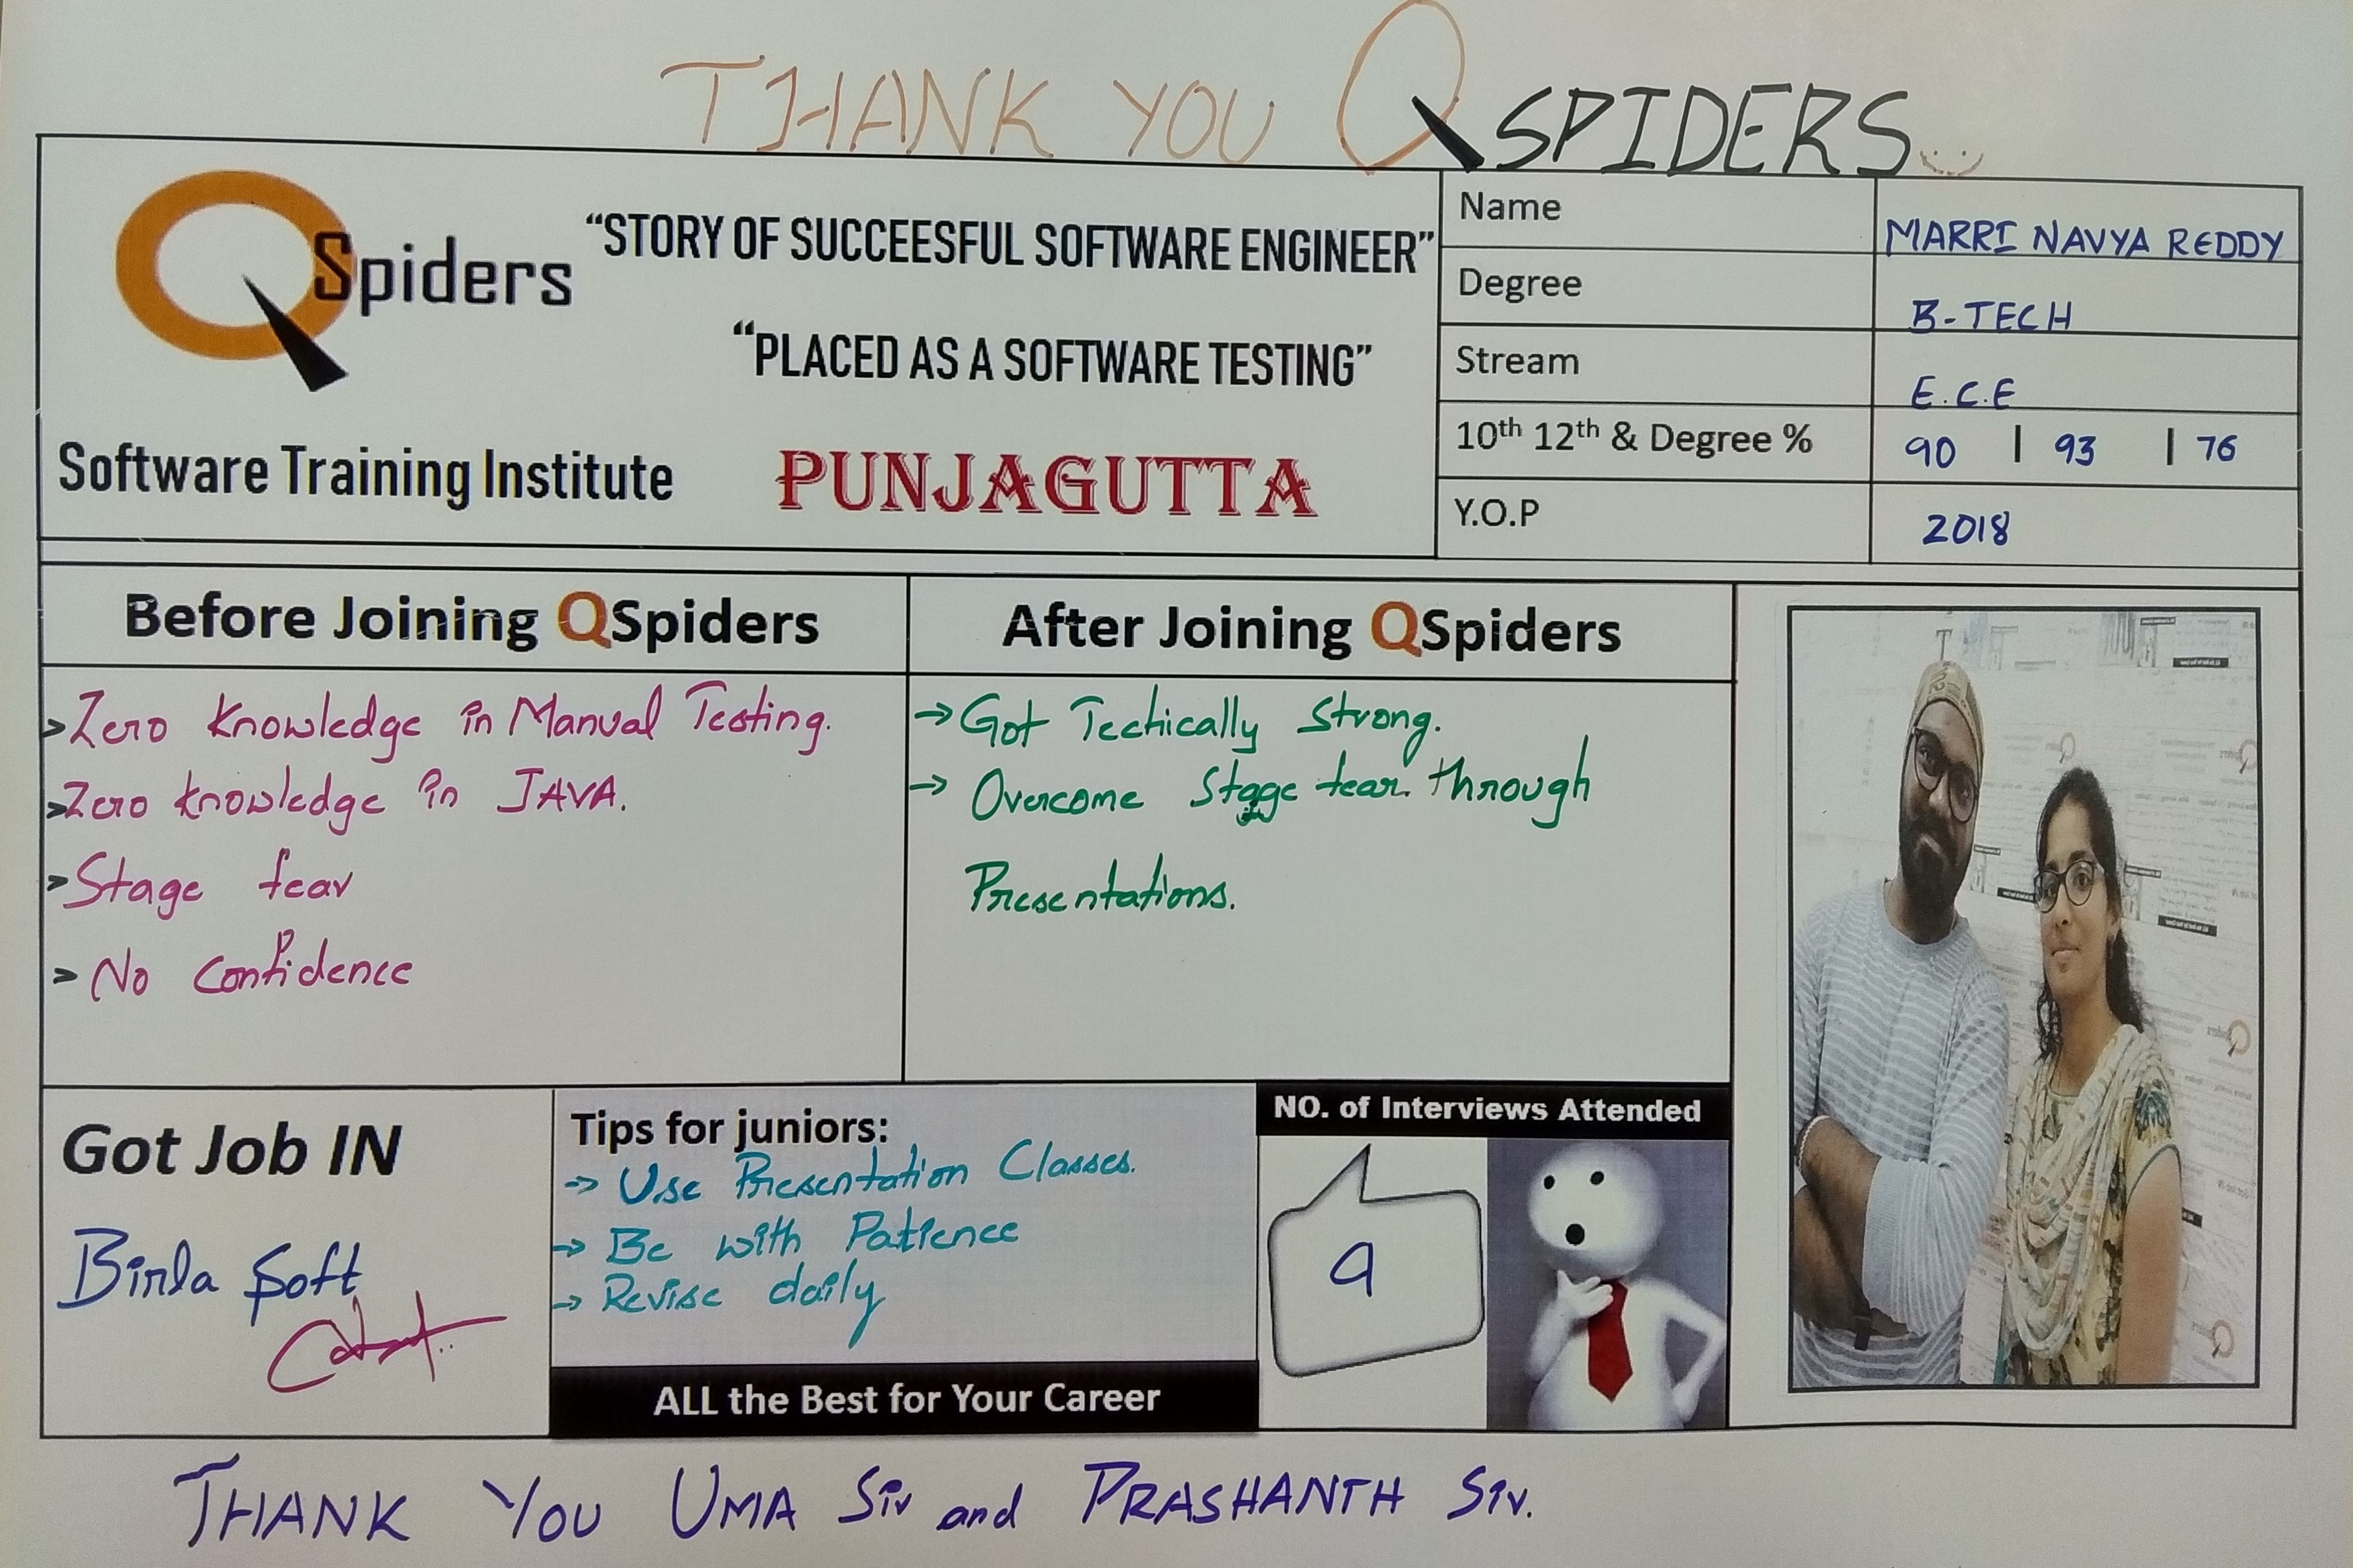 THANK YOU QSPIDERS
QSpiders
"STORY OF SUCCEESFUL SOFTWARE ENGINEER"
"PLACED AS A SOFTWARE TESTING"
Software Training Institute
PUNJAGUTTA
Name MARRI NAVYA REDDY
Degree B-TECH
Stream E.C.E
10th 12th & Degree % 90 | 93 | 76
Y.O.P 2018
Before Joining QSpiders
> Zero knowledge in Manual Testing.
> Zero knowledge in JAVA.
> Stage fear
> No Confidence
After Joining QSpiders
→ Got Techically Strong.
→ Overcome Stage fear through
Presentations.
Got Job IN
Birla Soft
Tips for juniors:
→ Use Presentation Classes.
→ Be with Patience
→ Revise daily
ALL the Best for Your Career
NO. of Interviews Attended
9
THANK YOU UMA Sir and PRASHANTH Sir.